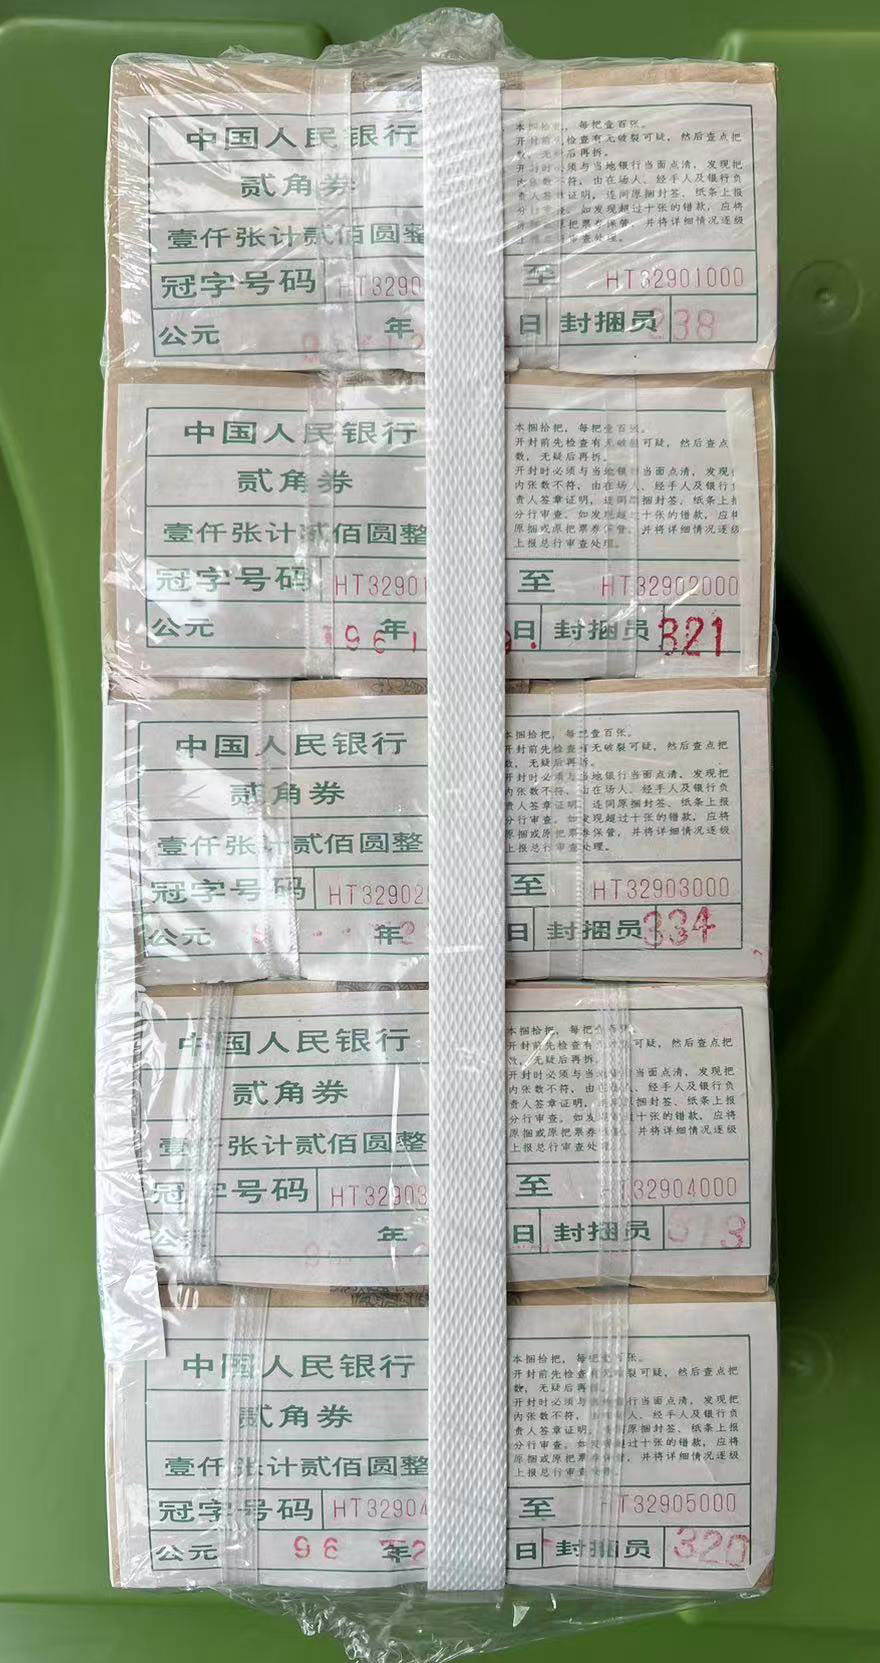 中国人民银行
贰角券
壹仟张计贰佰圆整
冠字号码 HT3290 至 HT32901000
公元 年 日 封捆员 238
本捆拾把，每把壹百张。
开封前先检查有无破裂可疑，然后查点把
数，无疑后再拆。
开封时必须与当地银行当面点清，发现把
内张数不符，由在场人、经手人及银行负
责人签章证明，连同原捆封签、纸条上报
分行审查。如发现超过十张的错款，应将
原捆或原把票券保管，并将详细情况逐级
上报总行审查处理。
中国人民银行
贰角券
壹仟张计贰佰圆整
冠字号码 HT32901 至 HT32902000
公元 96 年 日 封捆员 321
本捆拾把，每把壹百张。
开封前先检查有无破裂可疑，然后查点
数，无疑后再拆。
开封时必须与当地银行当面点清，发现
内张数不符，由在场人、经手人及银行
责人签章证明，连同原捆封签、纸条上报
分行审查。如发现超过十张的错款，应将
原捆或原把票券保管，并将详细情况逐级
上报总行审查处理。
中国人民银行
贰角券
壹仟张计贰佰圆整
冠字号码 HT32902 至 HT32903000
公元 年 日 封捆员 334
本捆拾把，每把壹百张。
开封前先检查有无破裂可疑，然后查点把
数，无疑后再拆。
开封时必须与当地银行当面点清，发现把
内张数不符，由在场人、经手人及银行负
责人签章证明，连同原捆封签、纸条上报
分行审查。如发现超过十张的错款，应将
原捆或原把票券保管，并将详细情况逐级
上报总行审查处理。
中国人民银行
贰角券
壹仟张计贰佰圆整
冠字号码 HT32903 至 HT32904000
公元 年 日 封捆员
本捆拾把，每把壹百张。
开封前先检查有无破裂可疑，然后查点把
数，无疑后再拆。
开封时必须与当地银行当面点清，发现把
内张数不符，由在场人、经手人及银行负
责人签章证明，连同原捆封签、纸条上报
分行审查。如发现超过十张的错款，应将
原捆或原把票券保管，并将详细情况逐级
上报总行审查处理。
中国人民银行
贰角券
壹仟张计贰佰圆整
冠字号码 HT32904 至 HT32905000
公元 96 年 日 封捆员 320
本捆拾把，每把壹百张。
开封前先检查有无破裂可疑，然后查点把
数，无疑后再拆。
开封时必须与当地银行当面点清，发现把
内张数不符，由在场人、经手人及银行负
责人签章证明，连同原捆封签、纸条上报
分行审查。如发现超过十张的错款，应将
原捆或原把票券保管，并将详细情况逐级
上报总行审查处理。